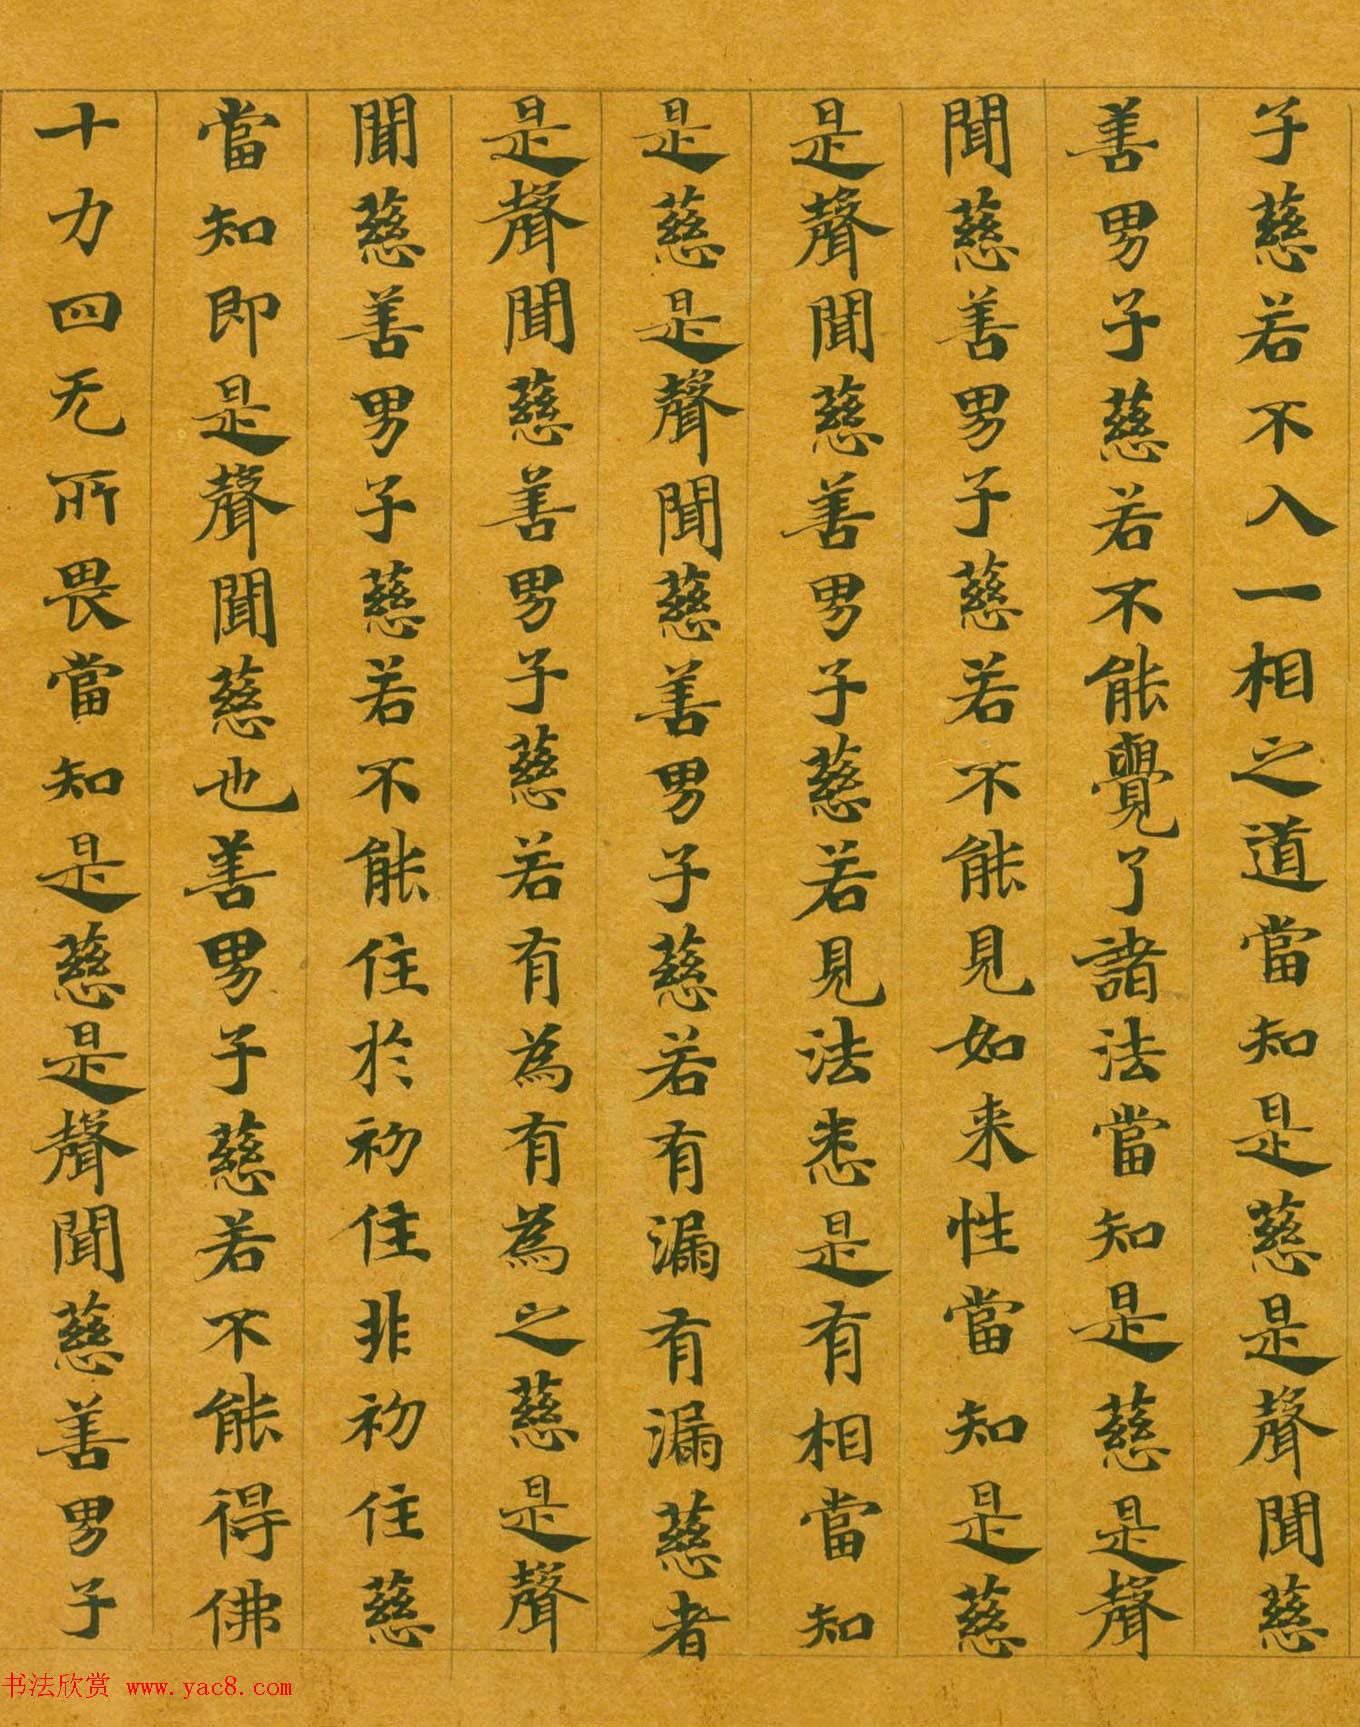 子慈若不入一相之道當知是慈是聲聞慈
善男子慈若不能覺了諸法當知是慈是聲
聞慈善男子慈若不能見如来性當知是慈
是聲聞慈善男子慈若見法悉是有相當知
是慈是聲聞慈善男子慈若有漏有漏慈者
是聲聞慈善男子慈若有為有為之慈是聲
聞慈善男子慈若不能住於初住非初住慈
當知即是聲聞慈也善男子慈若不能得佛
十力四无所畏當知是慈是聲聞慈善男子
书法欣赏 www.yac8.com